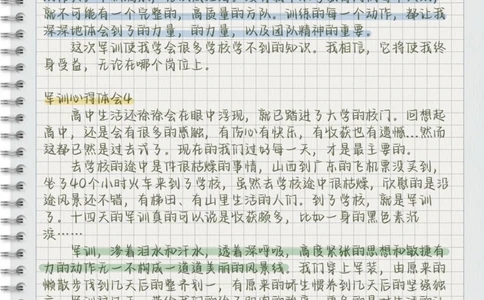 就不可能有一个完整的，高质量的方队。训练的每一个动作，都让我
深深地体会到了的力量，的力量，以及团队精神的重要。
这次军训使我学会很多学校学不到的知识。我相信，它将使我终
身受益，无论在哪个岗位上。
军训心得体会4
高中生活还徐徐会在眼中浮现，就已踏进了大学的校门。回想起
高中，还是会有很多的感触，有伤心有快乐，有收获也有遗憾…然而
这都已然是过去式了。现在的我们过好每一天，才是最主要的。
去学校的途中是件很枯燥的事情，山西到广东的飞机票没买到，
坐了40个小时火车来到了学校，虽然去学校途中很枯燥，欣慰的是沿
途风景还不错，有梯田、有山里生活的人们。到了学校，就是军训
了。十四天的军训真的可以说是收获颇多，比如一身的黑色素沉
淀……
军训，渗着泪水和汗水，透着深呼吸，高度紧张的思想和敏捷有
力的动作无一不构成一道道美丽的风景线。我们穿上军装，由原来的
懒散步伐到几天后的整齐划一，有原来的娇生惯养到几天后的坚强独